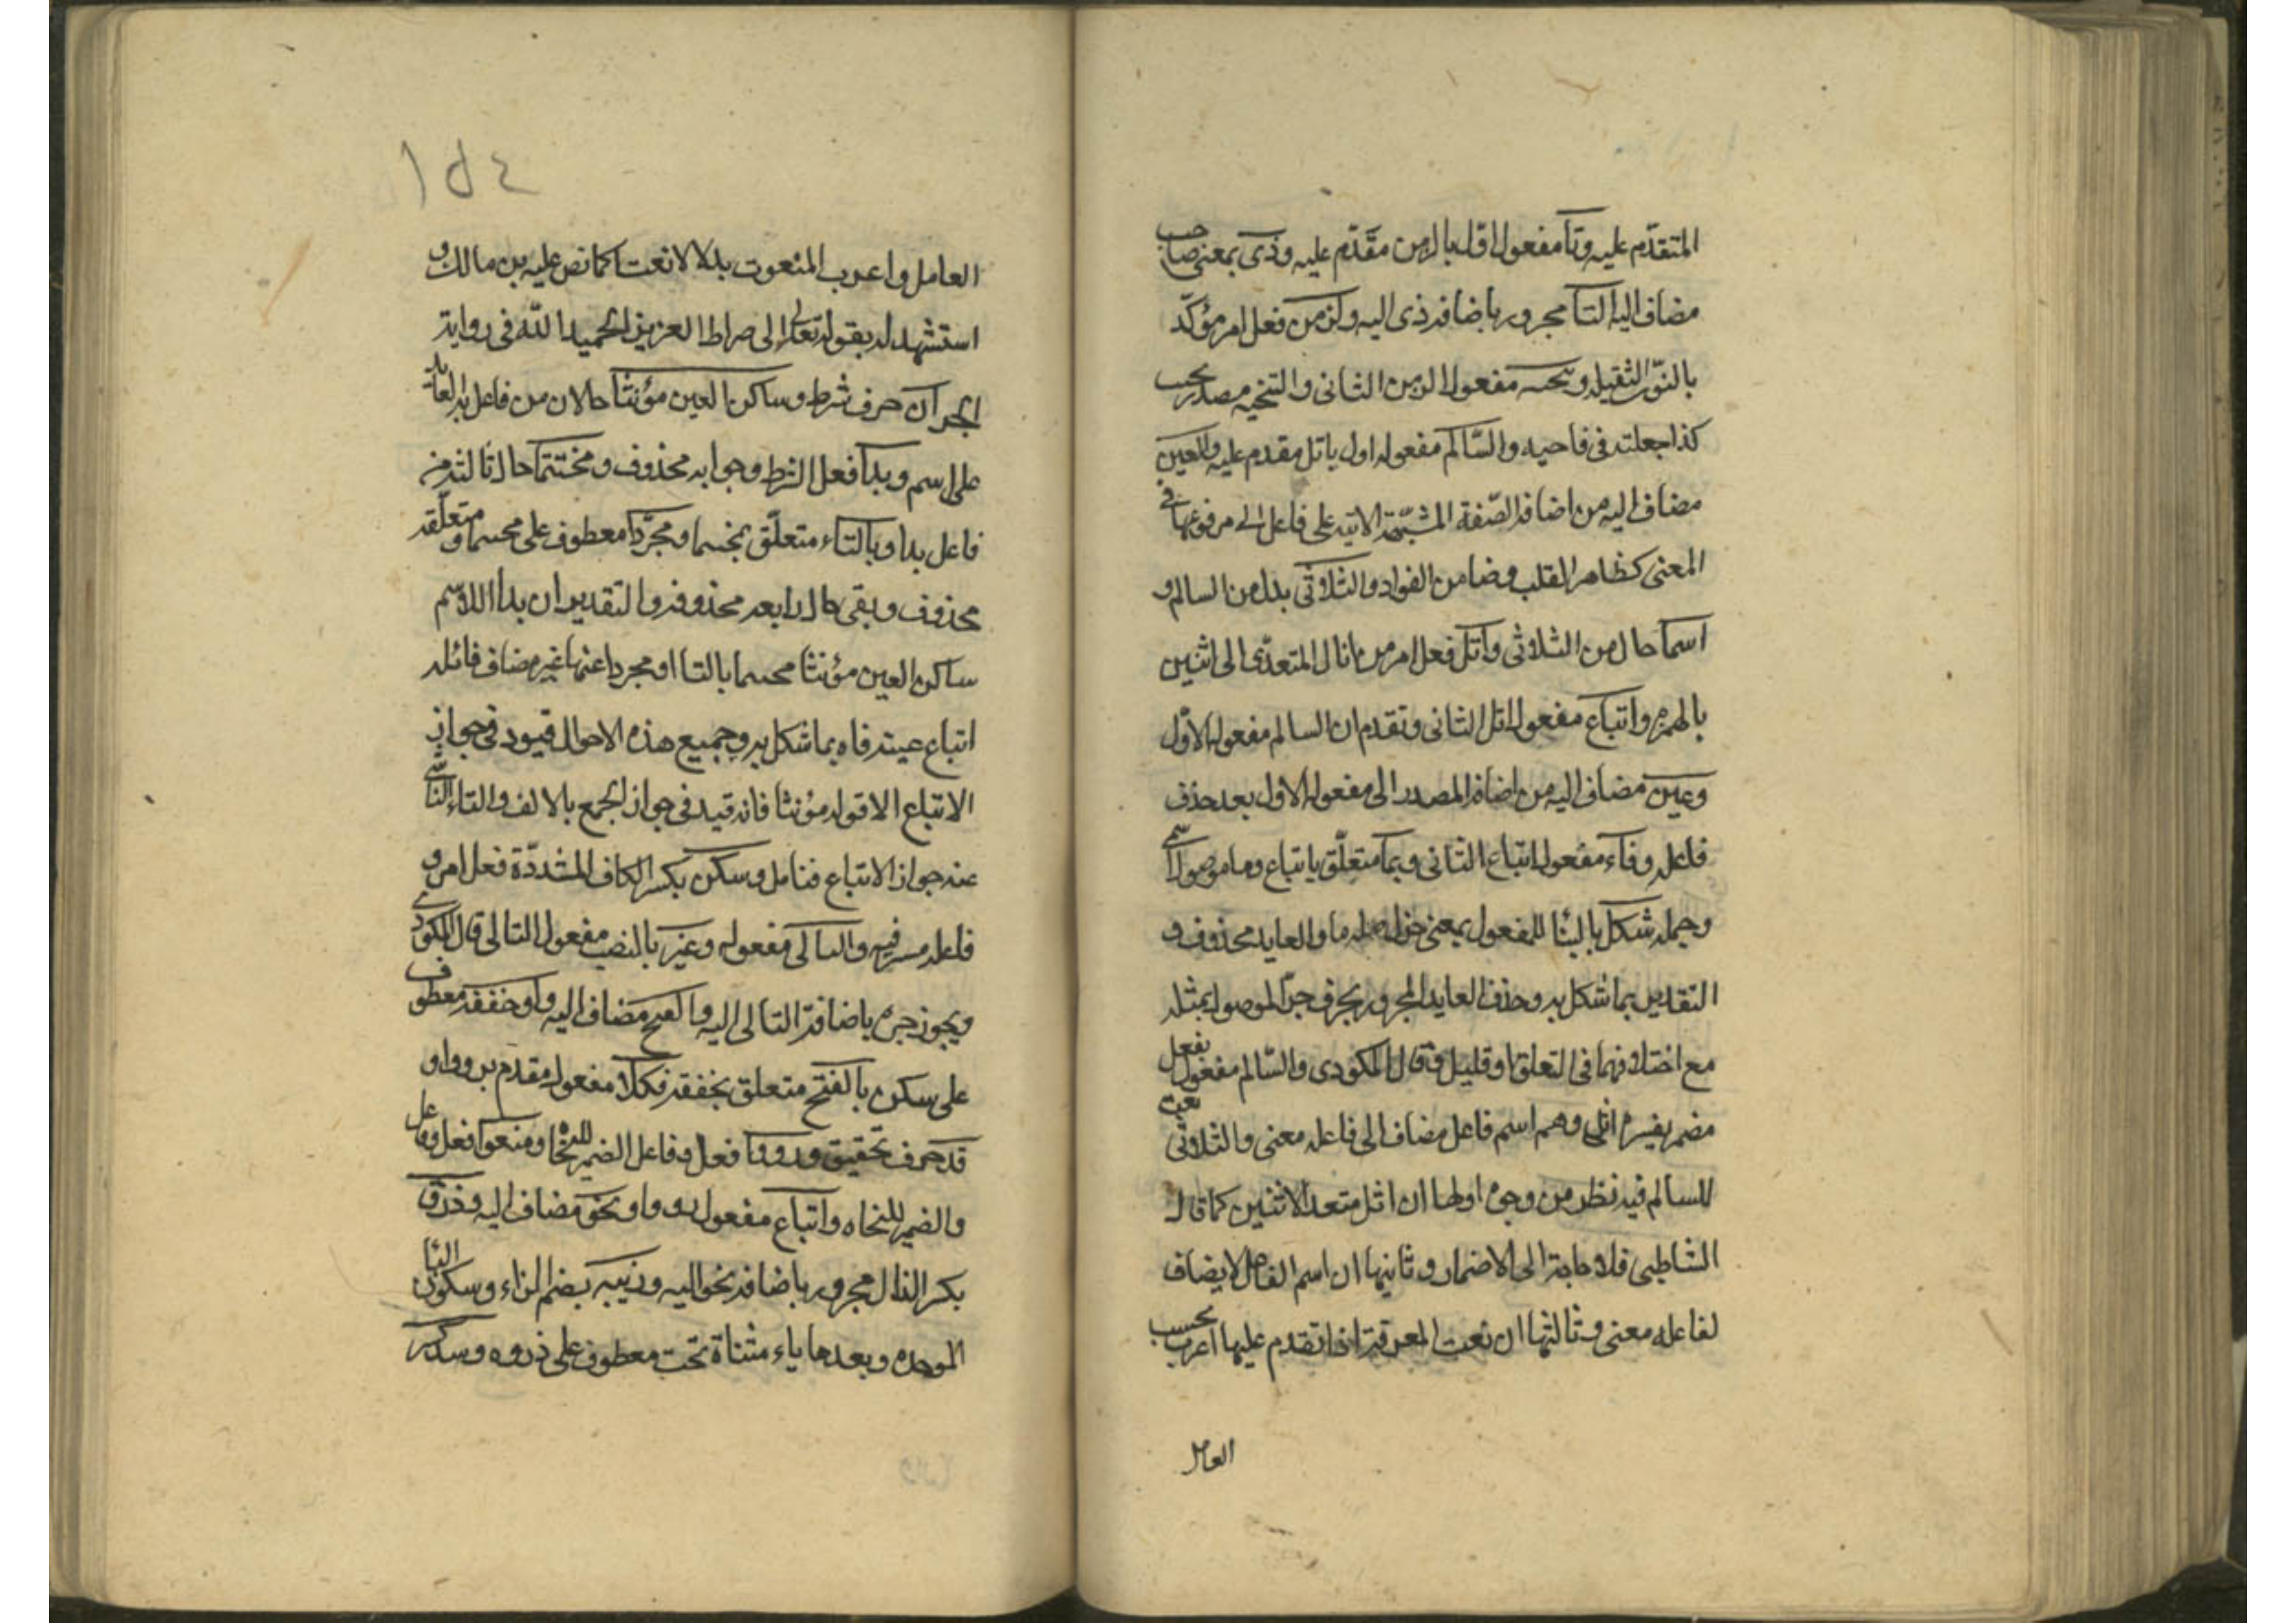 المتقدّم عليه وتا مفعول اوّل بالزمن مقدّم عليه وذى بمعنى صاحب
مضاف اليه التا مجرور باضافة ذى اليه والزمن فعل امر مؤكّد
بالنون الثقيلة وتنحيه مفعول الزمن الثانى والتنحيه مصدر
كذا جعلته فى ناحيه والسّالم مفعول اول باتل مقدم عليه والعين
مضاف اليه من اضافة الصّفة المشبّهة الاتية على فاعل الى مرفوعها فى
المعنى كطاهر القلب وضامن الفواد والثلاثى بدل من السالم و
اسما حال من الثلاثى واتل فعل امر من انال المتعدّى الى اثنين
بالهمزة واتباع مفعول اتل الثانى وتقدم ان السالم مفعوله الاوّل
وعين مضاف اليه من اضافة المصدر الى مفعوله الاول بعد حذف
فاعله وفاء مفعول اتباع الثانى وبما متعلّق باتباع وما موصول اسمى
وجملة شكل بالبنا للمفعول بمعنى صلة ما والعايد محذوف و
التقدير بما شكل به وحذف العايد المجرور بحرف جرّ الموصول بمثله
مع اختلافهما فى التعلق قليل وقال المكودى والسّالم مفعول بفعل
مضمر يفسره اتل وهم اسم فاعل مضاف الى فاعله معنى والثلاثى نعت
للسالم فيه نظر من وجوه اولها ان اتل متعد لاثنين كما قال
الشاطبى فلا حاجة الى الاضمار وثانيها ان اسم الفاعل لا يضاف
لفاعله معنى وثالثها ان نعت المعرفة اذا تقدم عليها اعرب بحسب
العامل
١٥٤
العامل واعرب المنعوت بدلا لا نعتا كما نص عليه بن مالك و
استشهد له بقوله تعالى الى صراط العزيز الحميد الله فى رواية
الجر ان حرف شرط وساكن العين مؤنثا حالان من فاعل بدا العايد
على اسم وبدا فعل الشرط وجوابه محذوف ومختتما حال ثالثة من
فاعل بدا وبالتاء متعلّق بمختتما ومجرّدا معطوف على مختتما ومتعلّقه
محذوف وبقى حال رابعة محذوفة والتقدير ان بدا الاسم
ساكن العين مؤنثا مختتما بالتا او مجردا عنها غير مضاف فانله
اتباع عينه فاه بما شكل به وجميع هذه الاحوال قيود فى جواز
الاتباع الا قوله مؤنثا فانه قيد فى جواز الجمع بالالف والتاء الناشى
عنه جواز الاتباع فتامل وسكن بكسر الكاف المشددّة فعل امر و
فاعله مستتر فيه والتالى مفعوله وغير بالنصب مفعول التالى قال المكودى
ويجوز جره باضافة التالى اليه والفتح مضاف اليه او خففه معطوف
على سكن بالفتح متعلق بخففه فكلا مفعول مقدم برووا و
قد حرف تحقيق ورووا فعل وفاعل الضمير للنحاة ومنعوا فعل وفاعل
والضمير للنحاه واتباع مفعول منعوا ونحو مضاف اليه وذروة
بكسر الذال مجرور باضافة نحو اليه وزبيه بضم الزاء وسكون البا
الموحده وبعدها ياء مثناة تحت معطوف على ذروه وشذ كسر